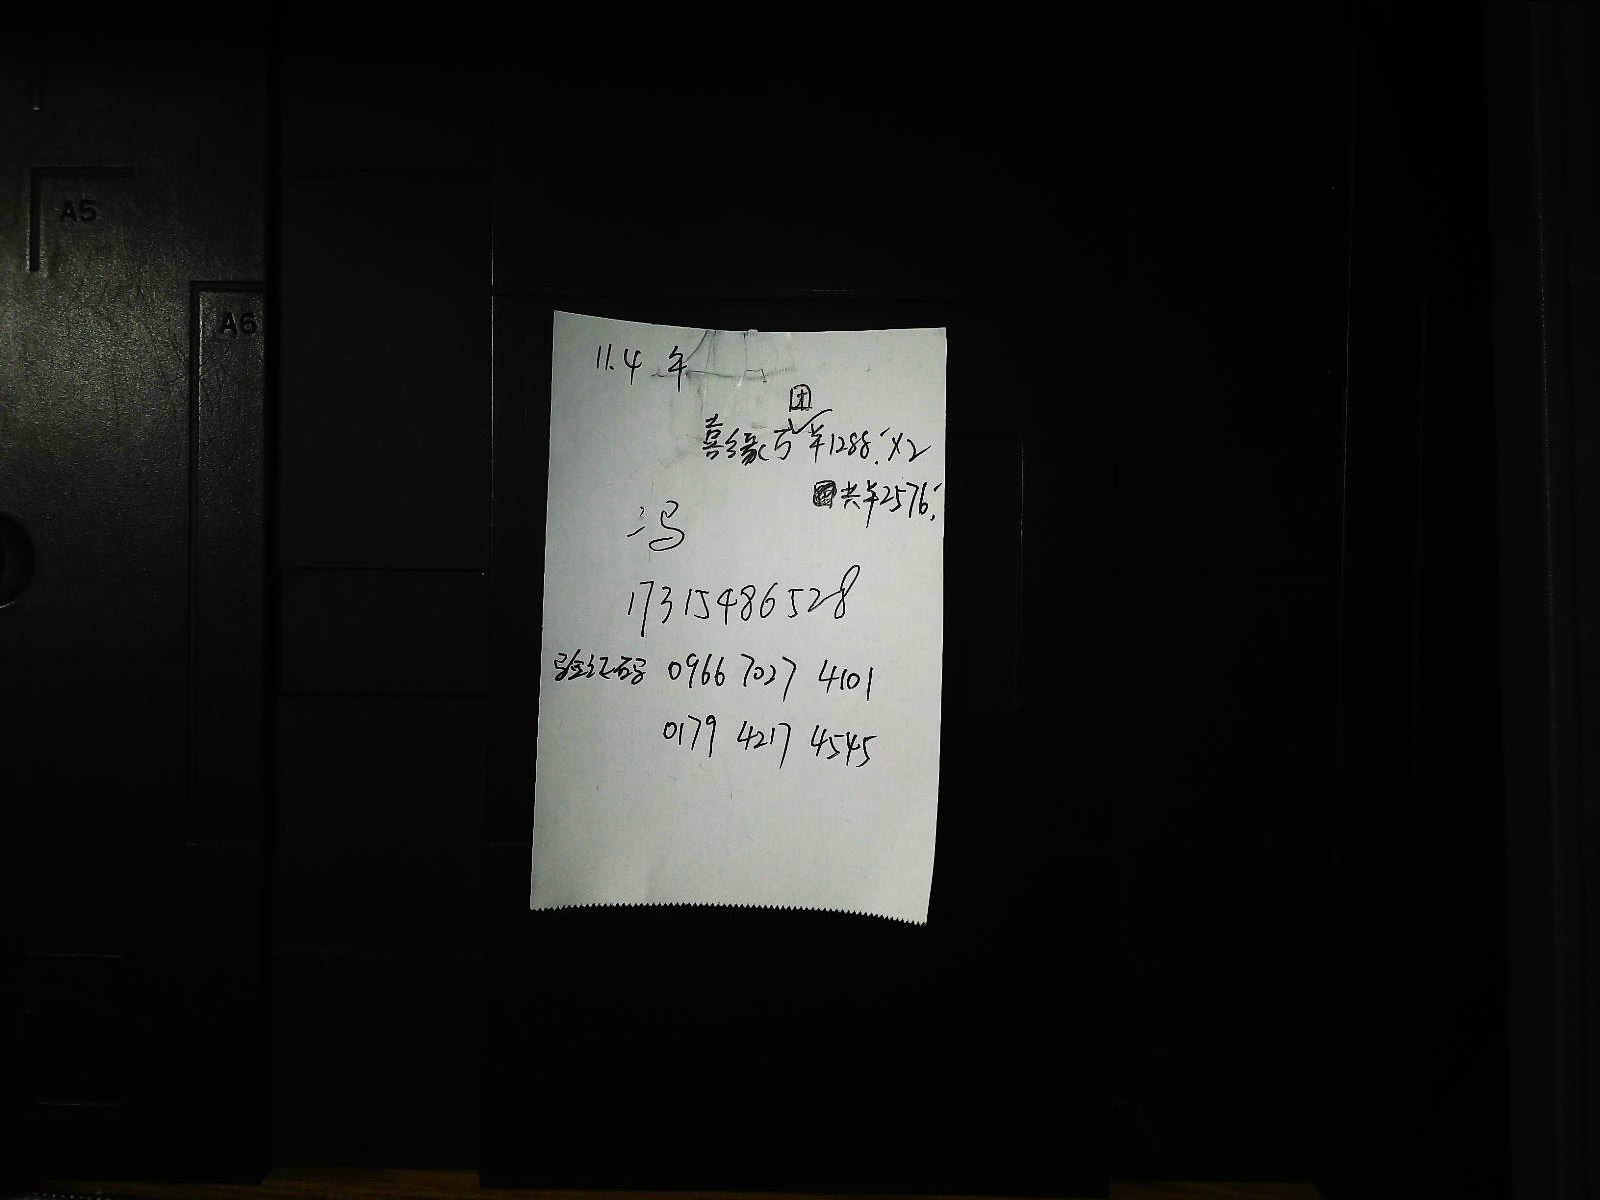 A5
A6
11.4 午
团
喜缘 ¥1288.-×2
共¥2576.-
冯
17315486528
验证码 0966 7027 4101
0179 4217 4545